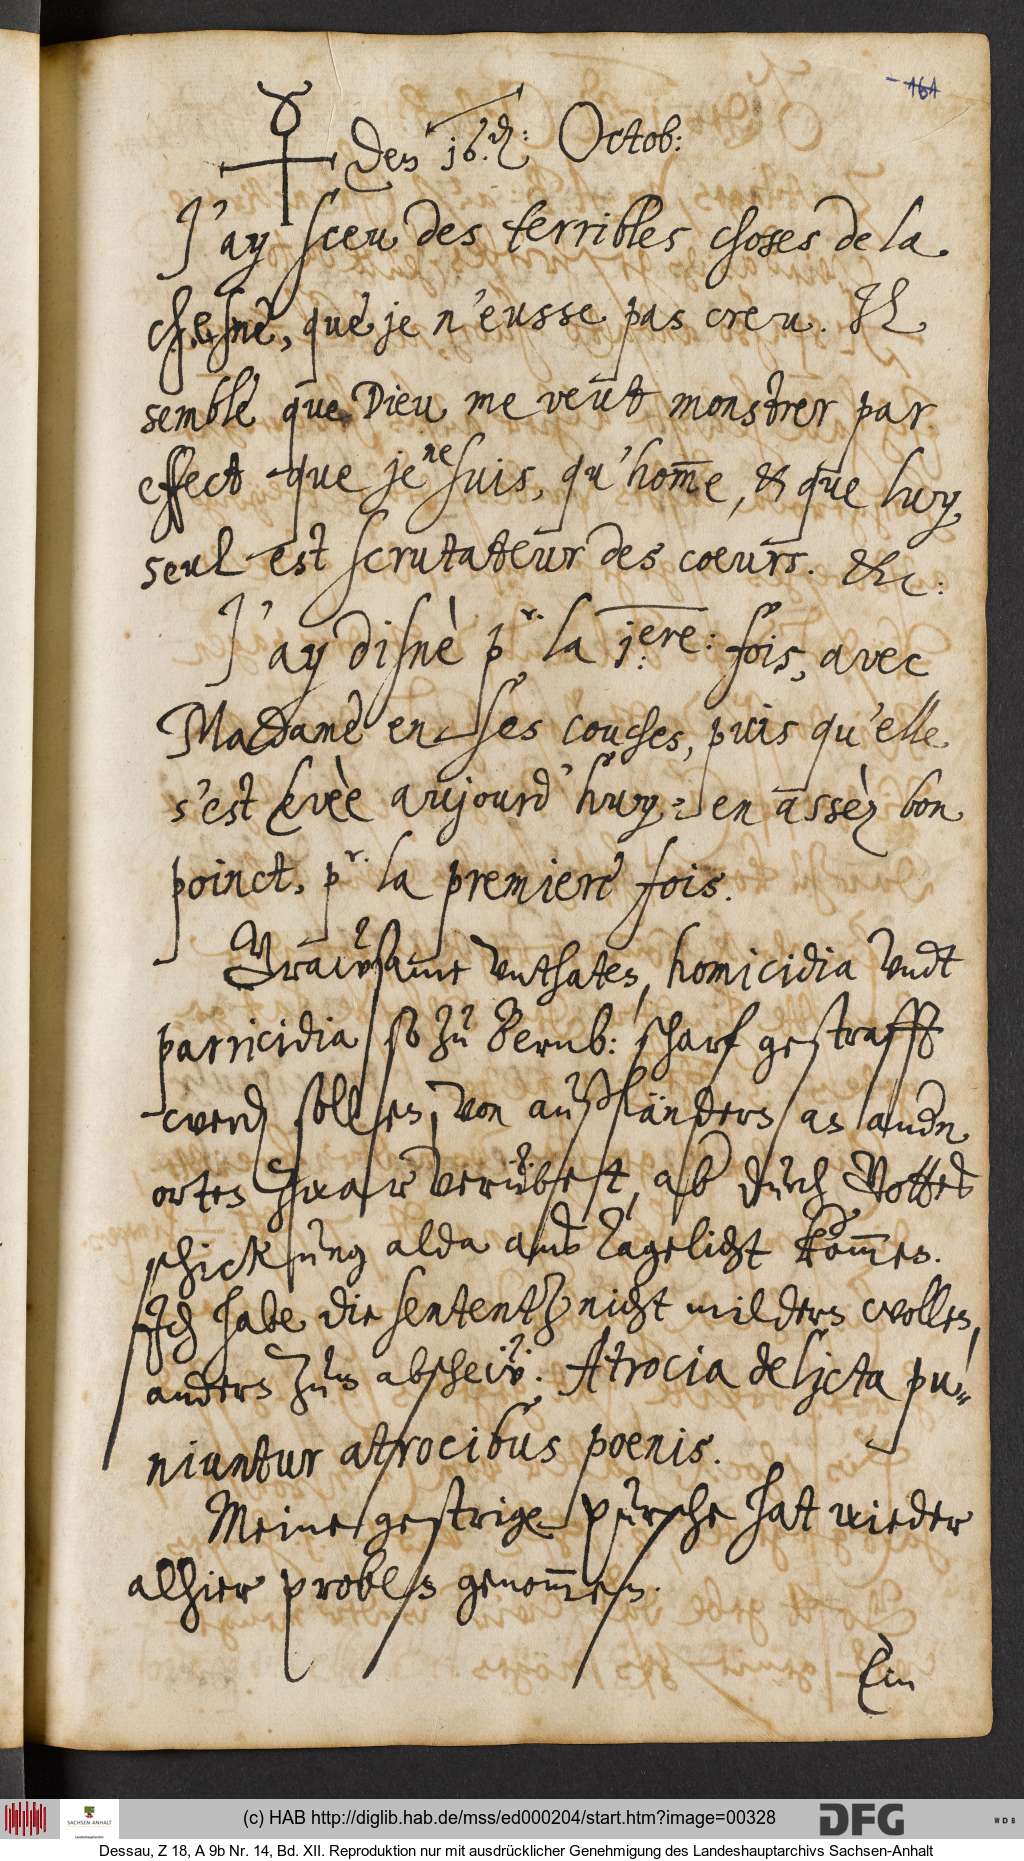 161
☿ Den 16.den: Octob:
J'ay sceu des terribles choses de la
chesnè, que je n'eusse pas creu. Il
semble que Dieu me veut monstrer par
effect que je ne suis, qu'hom̅e, & que luy
seul est scrutateur des coeurs. &c:
J'ay disnè pr. la 1.ere: fois, avec
Madame en ses couches, puis qu'elle
s'est levèe aujourd'huy, en assèz bon
poinct, pr. la premiere fois.
Grausame unthaten, homicidia undt
parricidia so zu Bernb: scharf gestrafft
werden sollen, von außländern an andern
orten zwar verübet, aber durch Gottes
schickung alda ans Tagelicht kom̅en.
Ich habe die sententz nicht mildern wollen,
andern zum abscheü. Atrocia delicta pu„
niuntur atrocibus poenis.
Meine gestrige pursche hat wieder
alhier proben genom̅en.
Ein
(c) HAB http://diglib.hab.de/mss/ed000204/start.htm?image=00328
SACHSEN-ANHALT
DFG
WDB
Dessau, Z 18, A 9b Nr. 14, Bd. XII. Reproduktion nur mit ausdrücklicher Genehmigung des Landeshauptarchivs Sachsen-Anhalt